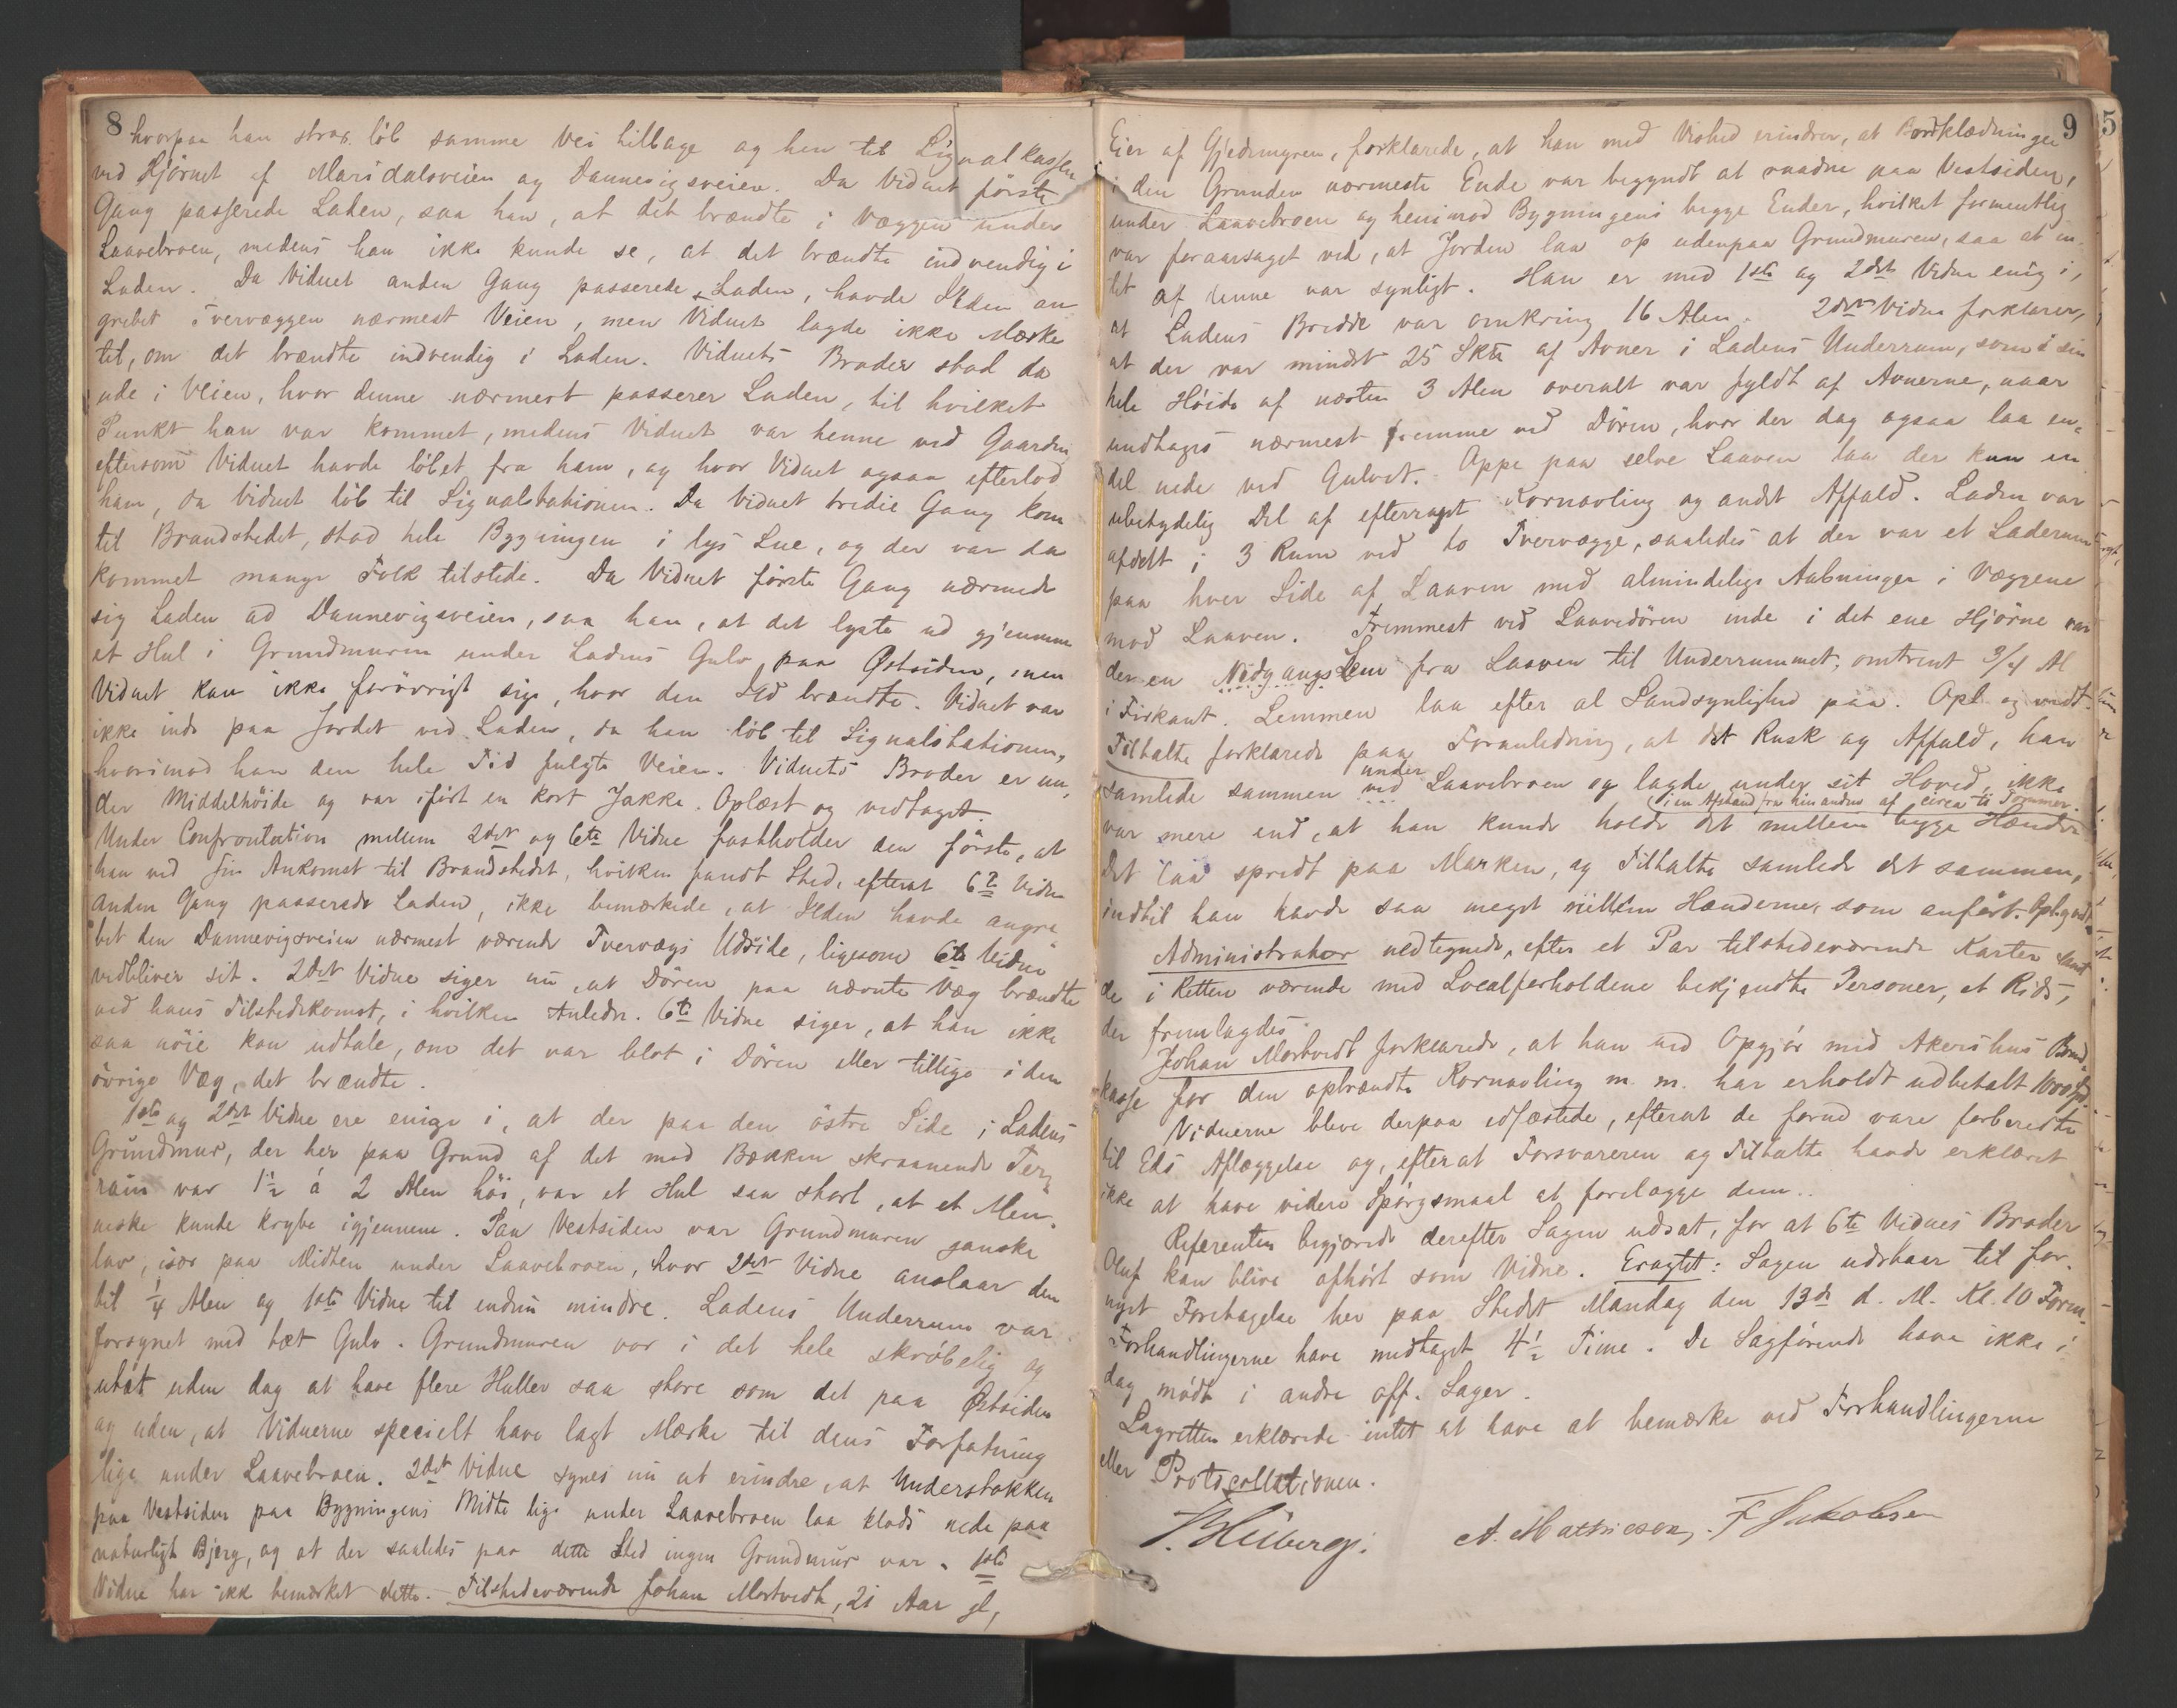 8
hvorpaa han strax løb samme Vei tilbage og hen til Signalkassen
ved Hjørnet af Maridalsveien og Dannevigsveien. Da Vidnet første
Gang passerede Laden, saa han, at det brændte i Væggen under
Laavebroen, medens han ikke kunde se, at det brændte indvendig i
Laden. Da Vidnet anden Gang passerede Laden, havde Ilden an-
grebet Tvervæggen nærmest Veien, men Vidnet lagde ikke Mærke
til, om det brændte indvendig i Laden. Vidnets Broder stod da
ude i Veien, hvor denne nærmest passerer Laden, til hvilket
Punkt han var kommet, medens Vidnet var henne ved Gaarden,
eftersom Vidnet havde løbet fra ham, og hvor Vidnet ogsaa efterlod
ham, da Vidnet løb til Signalstationen. Da Vidnet tredie Gang kom
til Brandstedet, stod hele Bygningen i lys Lue, og der var da
kommet mange Folk tilstede. Da Vidnet første Gang nærmede
sig Laden ad Dannevigsveien, saa han, at det lyste ud gjennem
et Hul i Grundmuren under Ladens Gulv paa Østsiden, men
Vidnet kan ikke forøvrigt sige, hvor den Ild brændte. Vidnet var
ikke inde paa Jordet ved Laden, da han løb til Signalstationen,
hvorimod han den hele Tid fulgte Veien. Vidnets Broder er un-
der Middelhøide og var iført en kort Jakke. Oplæst og vedtaget.
Under Confrontation mellem 2det og 6te Vidne fastholder den første, at
han ved sin Ankomst til Brandstedet, hvilken fandt Sted, efterat 6te Vidne
anden Gang passerede Laden, ikke bemærkede, at Ilden havde angre-
bet den Dannevigsveien nærmest værende Tvervægs Udside, ligesom 6te Vidne
vedbliver sit. 2det Vidne siger nu, at Døren paa nævnte Væg brændte
ved hans Tilstedekomst, i hvilken Anledn. 6te Vidne siger, at han ikke
saa nøie kan udtale, om det var blot i Døren eller tillige i den
øvrige Væg, det brændte.
1ste og 2det Vidne ere enige i, at der paa den østre Side i Ladens
Grundmur, der her paa Grund af det mod Bækken skraanende Ter-
rain var 1½ á 2 Alen høi, var et Hul saa stort, at et Men-
neske kunde krybe igjennem. Paa Vestsiden var Grundmuren ganske
lav, især paa Midten under Laavebroen, hvor 2det Vidne anslaar den
til ¼ Alen og 1ste Vidne til endnu mindre. Ladens Underrum var
forsynet med tæt Gulv. Grundmuren var i det hele skrøbelig og
utæt uden dog at have flere Huller saa store som det paa Østsiden
og uden, at Vidnerne specielt have lagt Mærke til dens Forfatning
lige under Laavebroen. 2det Vidne synes nu at erindre, at Understokken
paa Vestsiden paa Bygningens Midte lige under Laavebroen laa klods nede paa
naturligt Bjerg, og at der saaledes paa dette Sted ingen Grundmur var. 1ste
Vidne har ikke bemærket dette. Tilstedeværende Johan Mortvedt, 21 Aar gl,
9
Eier af Gjedemyren, forklarede, at han med Vished erindrer, at Bordklædningen
i den Grunden nærmeste Ende var begyndt at raadne paa Vestsiden,
under Laavebroen og henimod Bygningens begge Ender, hvilket formentlig
var foraarsaget ved, at Jorden laa op udenpaa Grundmuren, saa at in-
tet af denne var synligt. Han er med 1ste og 2det Vidne enig i,
at Ladens Bredde var omkring 16 Alen. 2det Vidne forklarer,
at der var mindst 25 Skti af Avner i Ladens Underrum, som i sin
hele Høide af næsten 3 Alen overalt var fyldt af Avnerne, naar
undtages nærmest fremme ved Døren, hvor der dog ogsaa laa en
del nede ved Gulvet. Oppe paa selve Laaven laa der kun en
ubetydelig Del af efterraget Kornavling og andet Affald. Laden var
afdelt i 3 Rum ved to Tvervægge, saaledes at der var et Laderum
paa hver Side af Laaven med almindelige Aabninger i Væggene
mod Laaven. Fremmest ved Laavedøren inde i det ene Hjørne var
der en Nedgangslem fra Laaven til Underrummet, omtrent 3/4 Al
i Firkant. Lemmen laa efter al Sandsynlighed paa. Opl. og vedt.
Tiltalte forklarede paa Foranledning, at det Rusk og Affald, han
under
samlede sammen ved Laavebroen og lagde under sit Hoved, ikke
i en Afstand fra hinanden af circa ti Tommer.
var mere end, at han kunde holde det mellem begge Hænder
Det laa spredt paa Marken, og Tiltalte samlede det sammen,
indtil han havde saa meget mellem Hænderne, som anført. Opl. og vedt.
Administrator nedtegnede, efter et Par tilstedeværende Karter samt
de i Retten værende med Localforholdene bekjendte Personer, et Rids,
der fremlagdes.
Johan Mortvedt forklarede, at han ved Opgjør med Akershus Brand-
kasse for den opbrændte Kornavling m. m. har erholdt udbetalt 1000
Vidnerne bleve derpaa edfæstede, efterat de forud vare forberedte
til Eds Aflæggelse og, efterat Forsvareren og Tiltalte havde erklæret
ikke at have videre Spørgsmaal at forelægge dem.
Referenten begjærede derefter Sagen udsat, for at 6te Vidnes Broder
Oluf kan blive afhørt som Vidne. Eragtet: Sagen udstaar til for-
nyet Foretagelse her paa Stedet Mandag den 13de d. M. Kl. 10 Form.
Forhandlingerne have medtaget 4½ Time. De Sagførende have ikke i
dag mødt i andre off. Sager.
Lagretten erklærede intet at have at bemærke ved Forhandlingerne
eller Protocollationen.
A. Mathieson. F Jakobsen